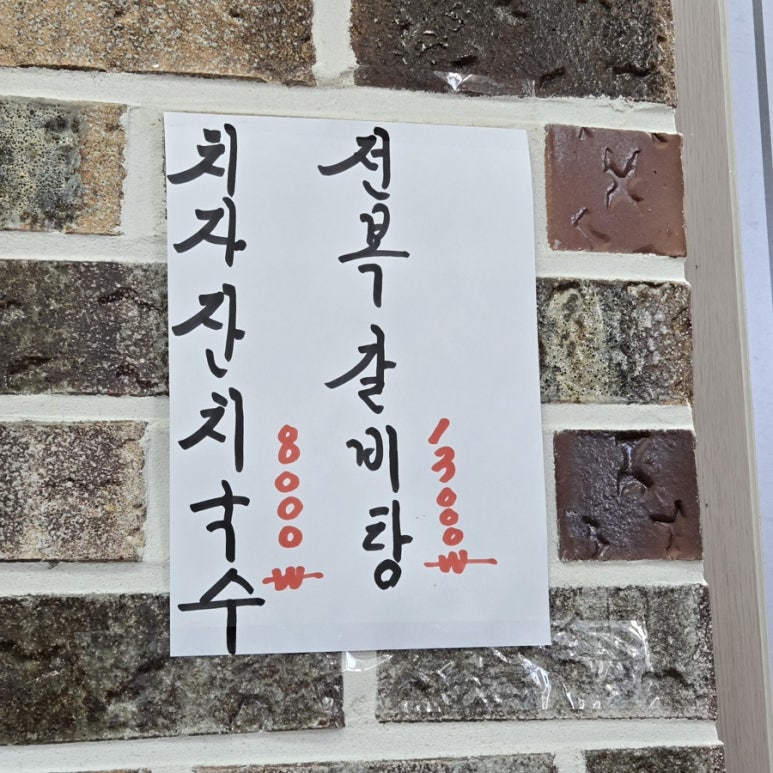 치자잔치국수
8000₩
전복갈비탕
13000₩